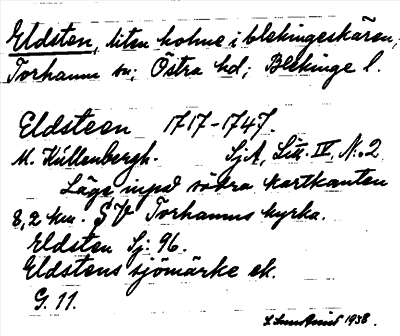 Eldsten, liten holme i blekingeskären,
Torhamn sn; Östra hd; Blekinge l.
Eldsteen 1717-1747.
M. Küllenbergh. SjA, Litt. IV, N:o 2
Läge inpå södra kartkanten
8,2 km. SV Torhamns kyrka.
Eldsten Sj. 96.
Eldstens sjömärke ek.
G. 11.
1938